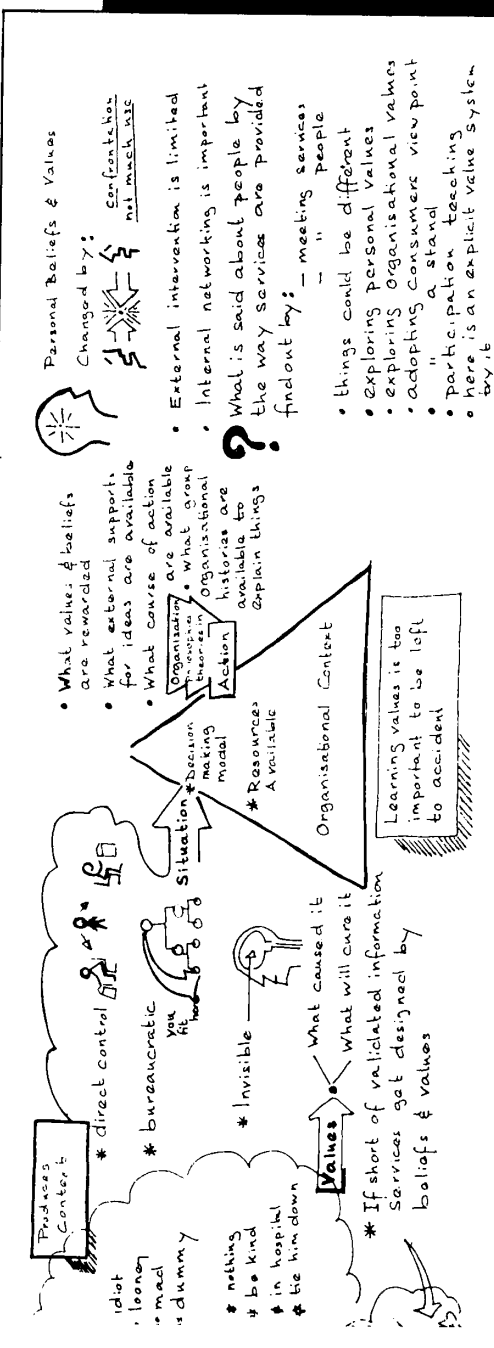 Produces
Context
idiot
looney
mad
dummy
* nothing
* be kind
* in hospital
* tie him down
* direct control
* bureaucratic
you
fit
here
* Invisible
Values
What caused it
What will cure it
* If short of validated information
services get designed by
beliefs & values
Situation
* Decision
making
model
* Resources
Available
Organisational Context
Learning values is too
important to be left
to accident
• What values & beliefs
are rewarded
• What external supports
for ideas are available
• What course of action
are available
Organisation
philosophies
theories in
Action
• what group
organisational
histories are
available to
explain things
Personal Beliefs & Values
Changed by:
confrontation
not much use
• External intervention is limited
• Internal networking is important
? What is said about people by
the way services are provided
find out by: - meeting services
- " people
• things could be different
• exploring personal values
• exploring organisational values
• adopting consumers view point
• " a stand
• participation teaching
• here is an explicit value system
try it